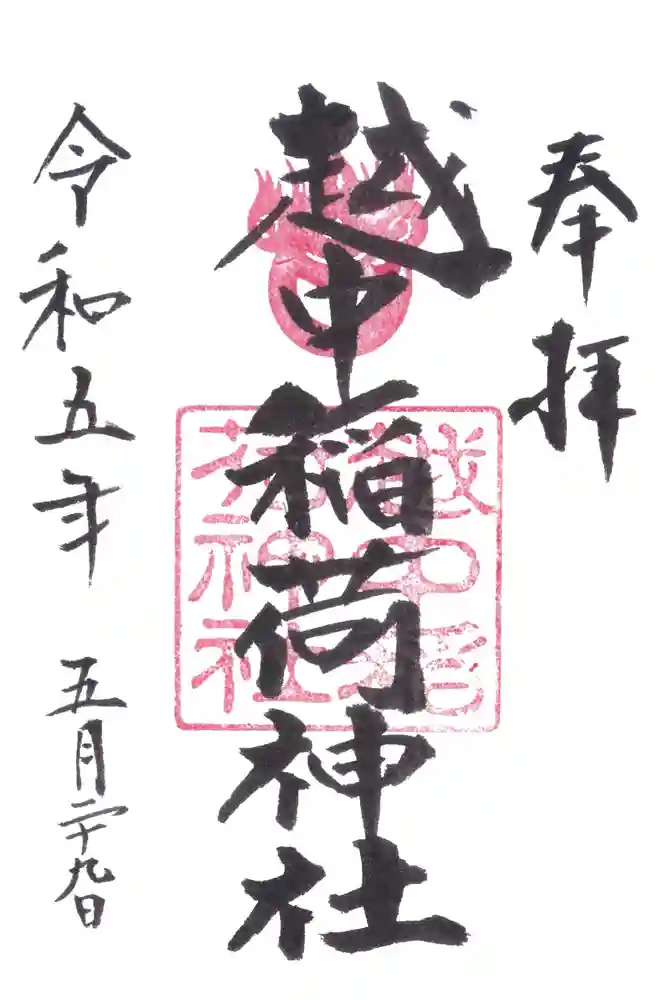 奉拝
越中稲荷神社
越中稲荷神社
令和五年 五月二十九日